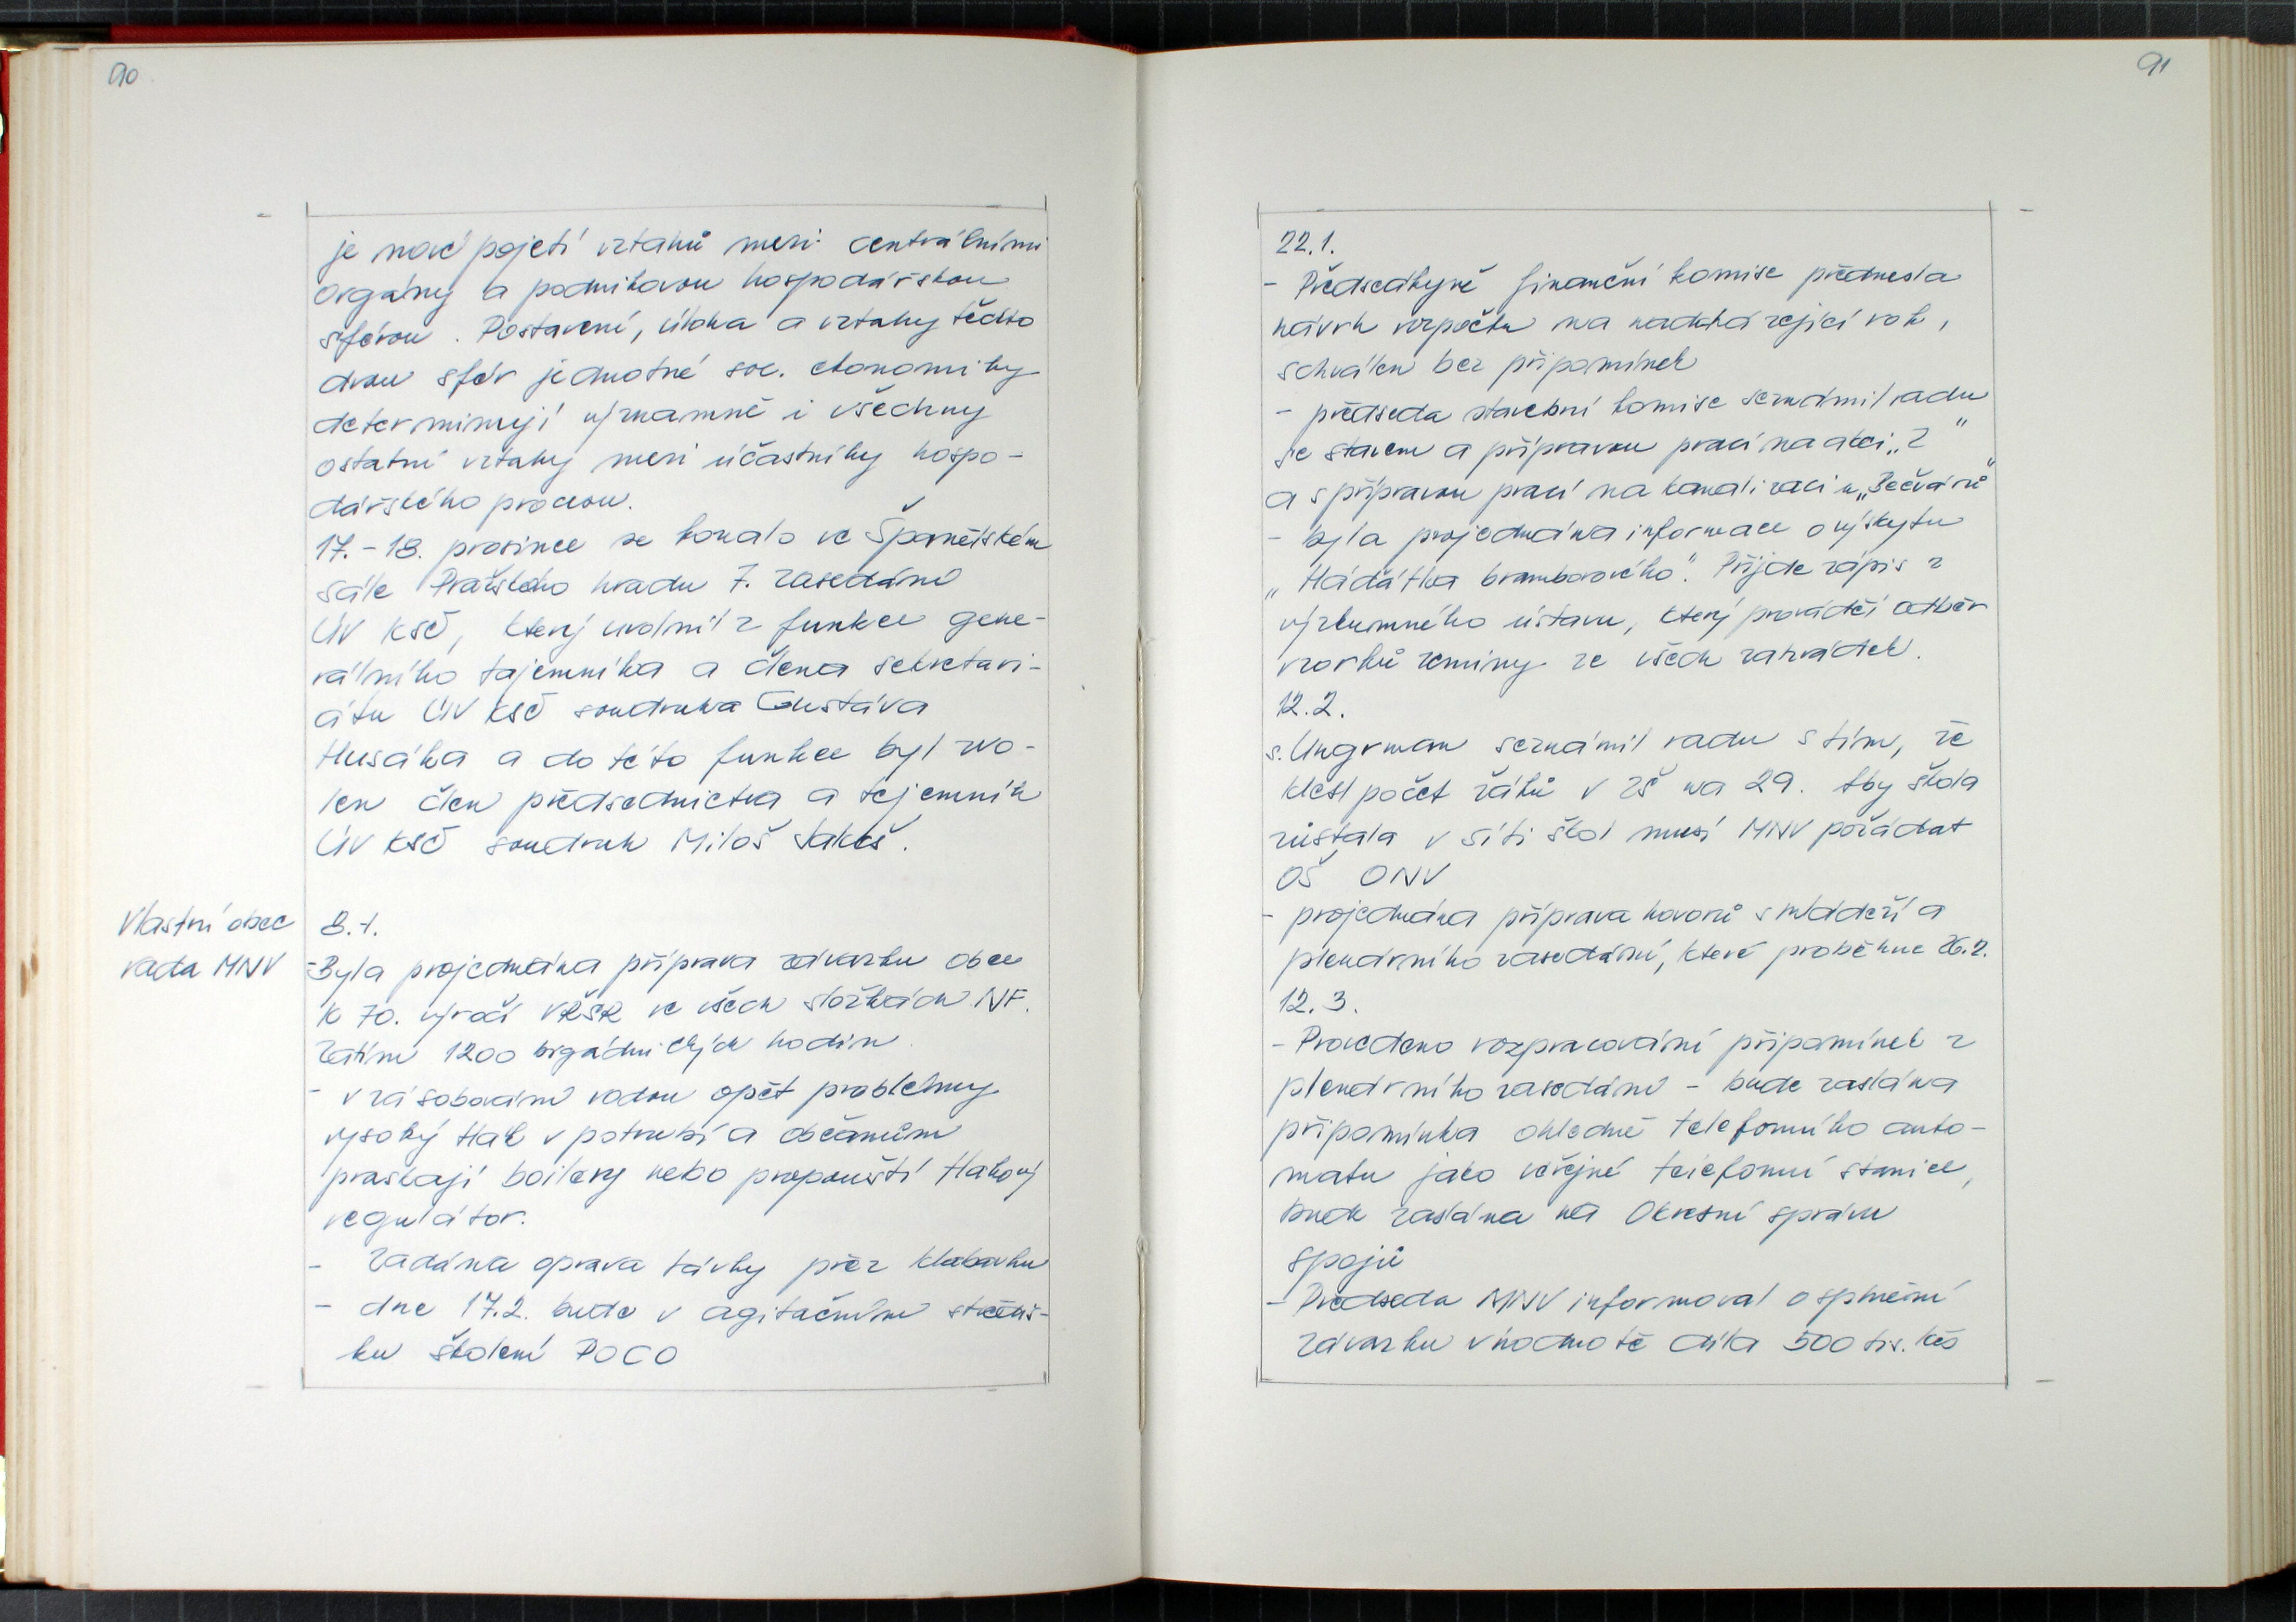 90
je nové pojetí vztahů mezi centrálními
orgány a podnikovou hospodářskou
sférou. Postavení, úloha a vztahy těchto
dvou sfér jednotné soc. ekonomiky
determinují významně i všechny
ostatní vztahy mezi účastníky hospo-
dářského procesu.
17.-18. prosince se konalo ve Španělském
sále Pražského hradu 7. zasedání
ÚV KSČ, který uvolnil z funkce gene-
rálního tajemníka a člena sekretari-
átu ÚV KSČ soudruha Gustáva
Husáka a do této funkce byl zvo-
len člen předsednictva a tajemník
ÚV KSČ soudruh Miloš Jakeš.
Vlastní obec
rada MNV
8.1.
-Byla projednána příprava závazku obce
k 70. výročí VŘSR ve všech složkách NF.
Zatím 1200 brigádnických hodin.
- v zásobování vodou opět problémy
vysoký tlak v potrubí a občanům
praskají boilery nebo propouští tlakový
regulátor.
- zadána oprava lávky přez Klabavku
- dne 17.2. bude v agitačním středis-
ku školení POCO
91
22.1.
- Předsedkyně finanční komise přednesla
návrh rozpočtu na nadcházející rok,
schválen bez připomínek
- předseda stavební komise seznámil radu
se stavem a přípravou prací na akci „Z"
a s přípravou prací na kanalizaci u „Bečvářů"
- byla projednána informace o výskytu
„Háďátka bramborového". Přijde zápis z
výzkumného ústavu, který prováděl odběr
vzorků zeminy ze všech zahrádek.
12.2.
s. Ungrman seznámil radu s tím, že
klesl počet žáků v ZŠ na 29. Aby škola
zůstala v síti škol musí MNV požádat
OŠ ONV
- projednána příprava hovorů s mládeží a
plenárního zasedání, které proběhne 26.2.
12.3.
- Provedeno rozpracování připomínek z
plenárního zasedání - bude zaslána
připomínka ohledně telefonního auto-
matu jako veřejné telefonní stanice,
bude zaslána na Okresní správu
spojů
- Předseda MNV informoval o splnění
závazku v hodnotě díla 500 tis. Kčs